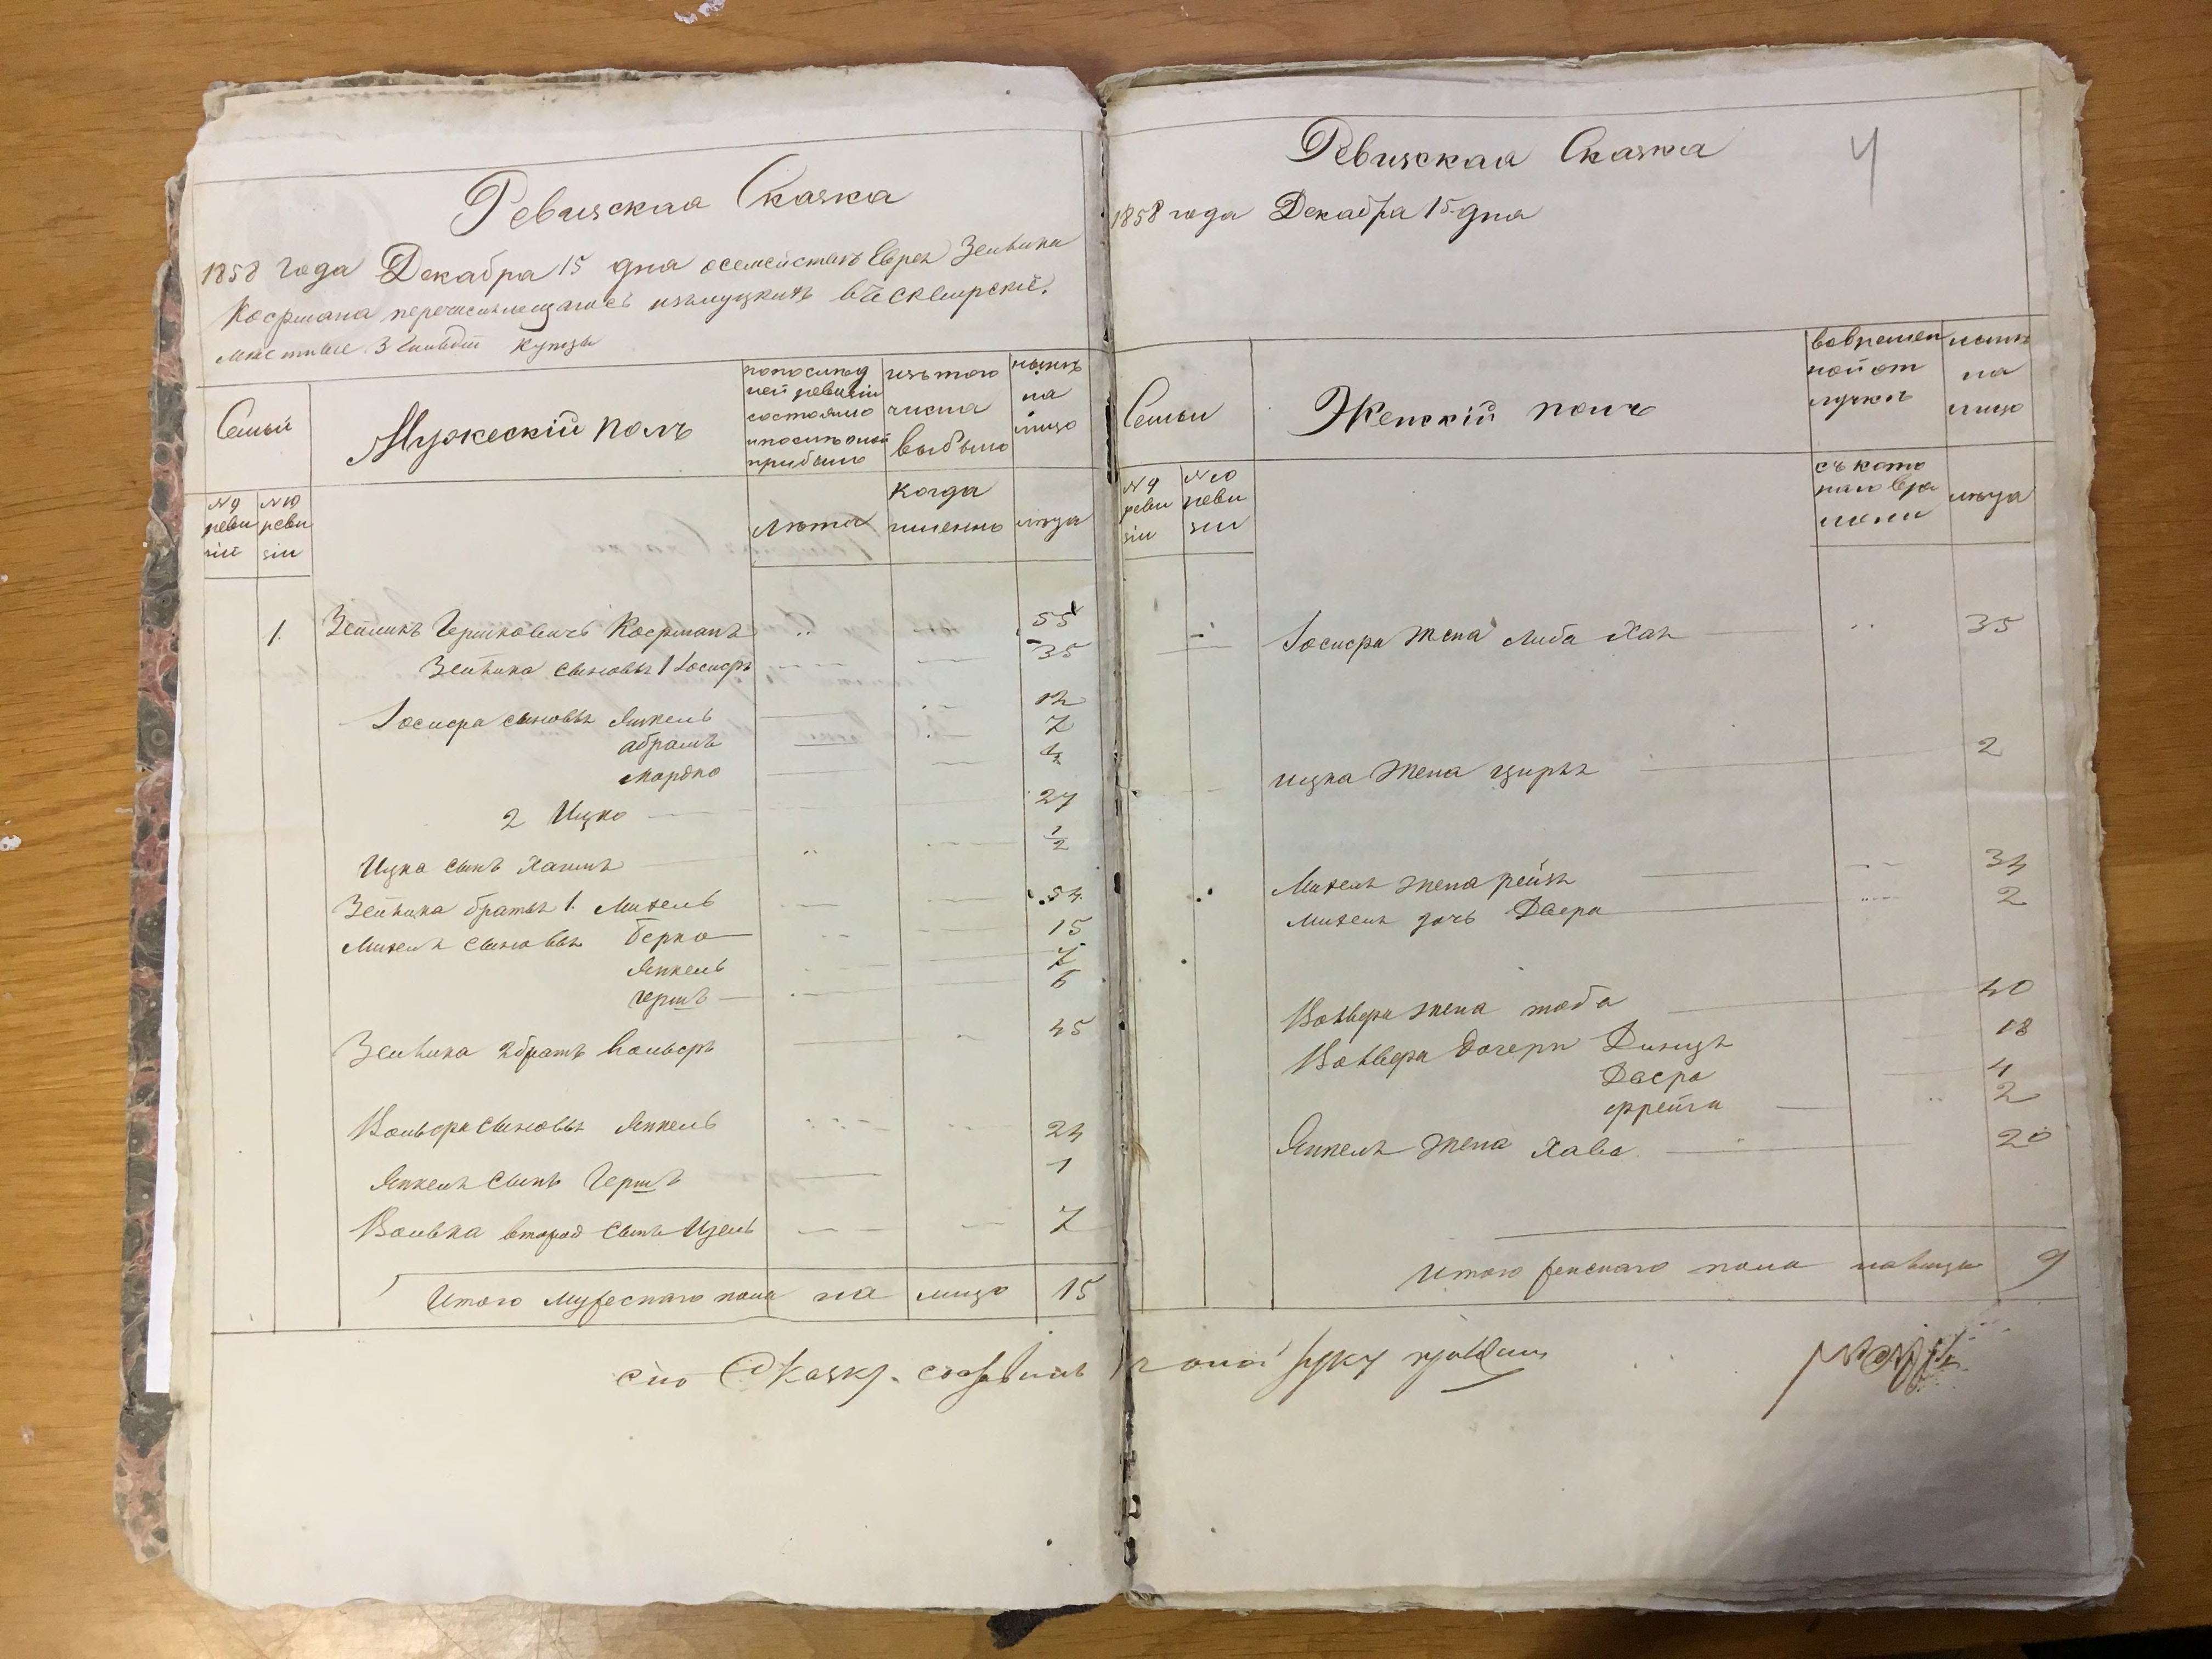 Ревизская Сказка
1858 года Декабра 15 дна осемействъ Еврея Зельлика
Косрмана перечисл изъ въ
местные 3 Гильдіи купцы
Семьи
Мужескій полъ
попослѣд
ней ревизіи
состояло
прибыло
изътого
числа
выбыло
нынѣ
на
лицо
№ 9
реви
зіи
№ 10
реви
зіи
лѣта
когда
именно
лѣта
1. Зельликъ Гершковичъ Косрманъ 55
Зельлика сыновья 1 Іосифъ 35
Іосифа сыновья Янкель 12
абрамъ 7
мордко
2 Ицко 27
Ицка сынъ Хаимъ 1/2
Зельлика братья 1. Михель 54
Михеля сыновья Берко 15
Янкель 7
гершъ 6
Зельлика 2 братъ Вольфъ 45
Вольфа сыновья Янкель 24
Янкеля сынъ Гершъ 1
Волька второй сынъ Ицель 7
Итого мужескаго пола на лицо 15
сію Сказку составилъ
Ревизская Сказка
4
1858 года Декабра 15 дна
Семьи
Женскій полъ
вовремен
ной от
лучкѣ
нынѣ
на
лицо
№ 9
реви
зіи
№ 10
реви
зіи
съ кото
раго вре
мени
лѣта
Іосифа жена Либа Хая 35
ицка жена цирля 2
Михеля жена рейзя 34
михеля дочь Двера 2
Вольфа жена тоба 40
Вольфа дочери Динця 18
Двера 4
фрейга 2
Янкеля жена Хава 20
Итого женскаго пола налицо 9
руку приложилъ